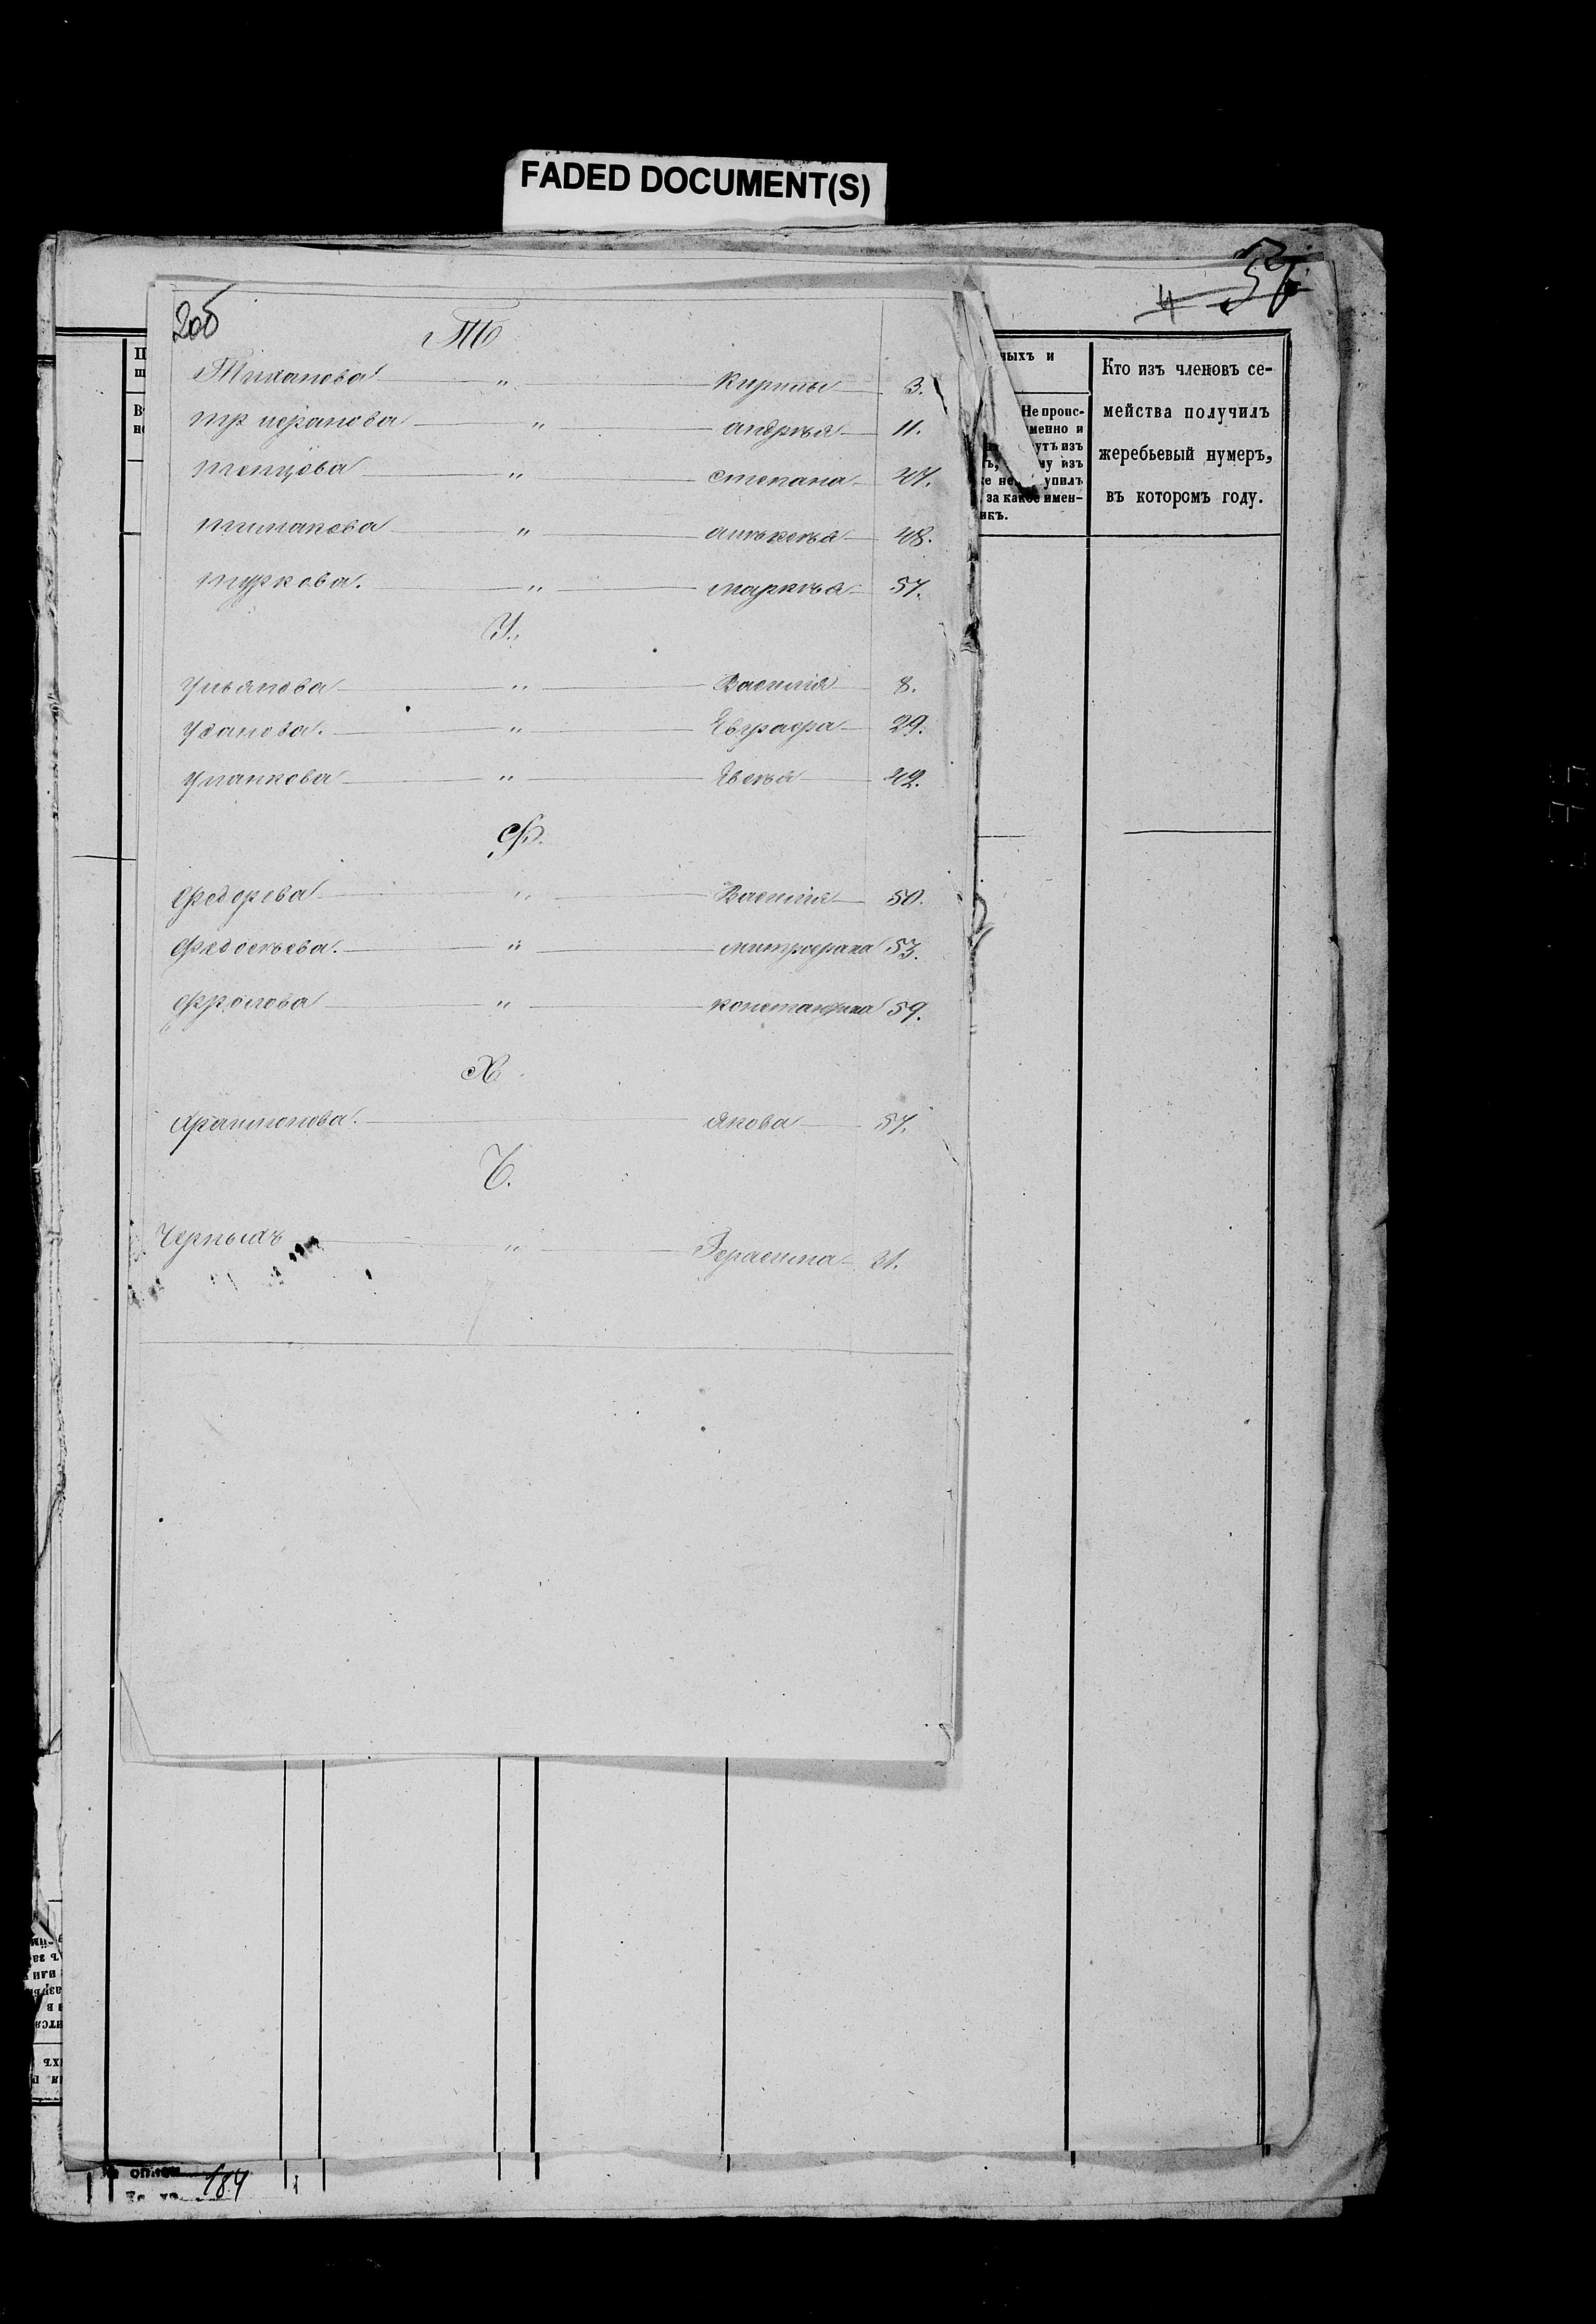 FADED DOCUMENT(S)
57
4
20б
Т
Тиханова " Кирилы 3.
Трифанова " андрѣя 11.
степана 47.
алѣксѣя 48.
Туркова. " 57.
У.
Ульянова " Василія 8.
Уханова. " Евграфа 29.
" Евсѣя 42.
Ф.
Федорова " Василія 50.
Федосѣева. " митрофана 53.
Фролова " константина 59.
Х
Харитонова. Якова 57.
Ч.
Черныхъ " Герасима 21.
ныхъ и
Не проис-
менно и
утъ изъ
му изъ
упилъ
за какое имен-
икъ.
Кто изъ членовъ се-
мейства получилъ
жеребьевый нумеръ,
въ которомъ году.
184